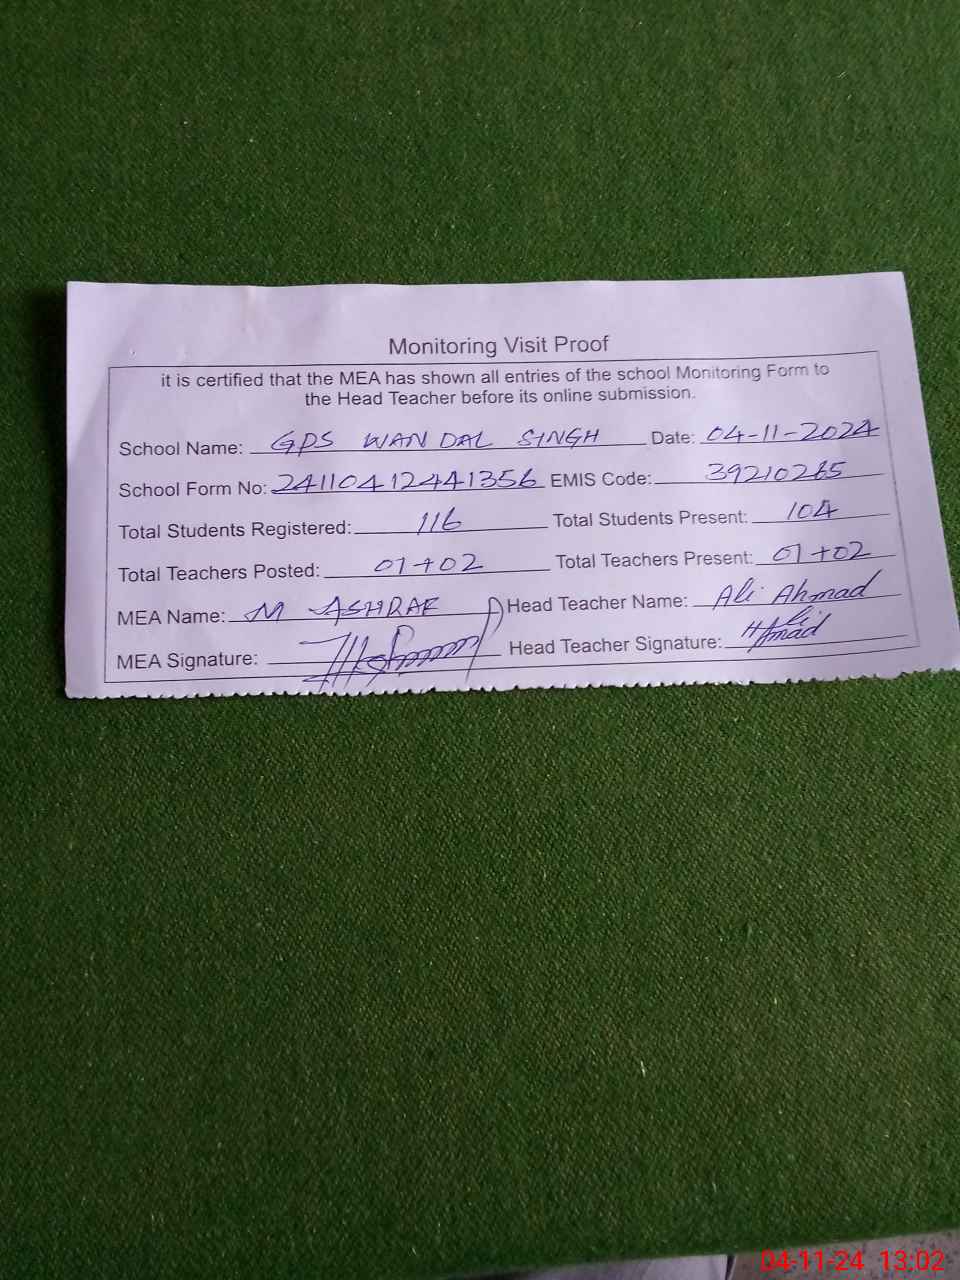 Monitoring Visit Proof
it is certified that the MEA has shown all entries of the school Monitoring Form to
the Head Teacher before its online submission.
School Name: GPS WANDAL SINGH Date: 04-11-2024
School Form No: 24110412441356 EMIS Code: 39210265
Total Students Registered: 116 Total Students Present: 104
Total Teachers Posted: 01+02 Total Teachers Present: 01+02
MEA Name: M ASHRAF Head Teacher Name: Ali Ahmad
MEA Signature: Head Teacher Signature:
04-11-24 13:02